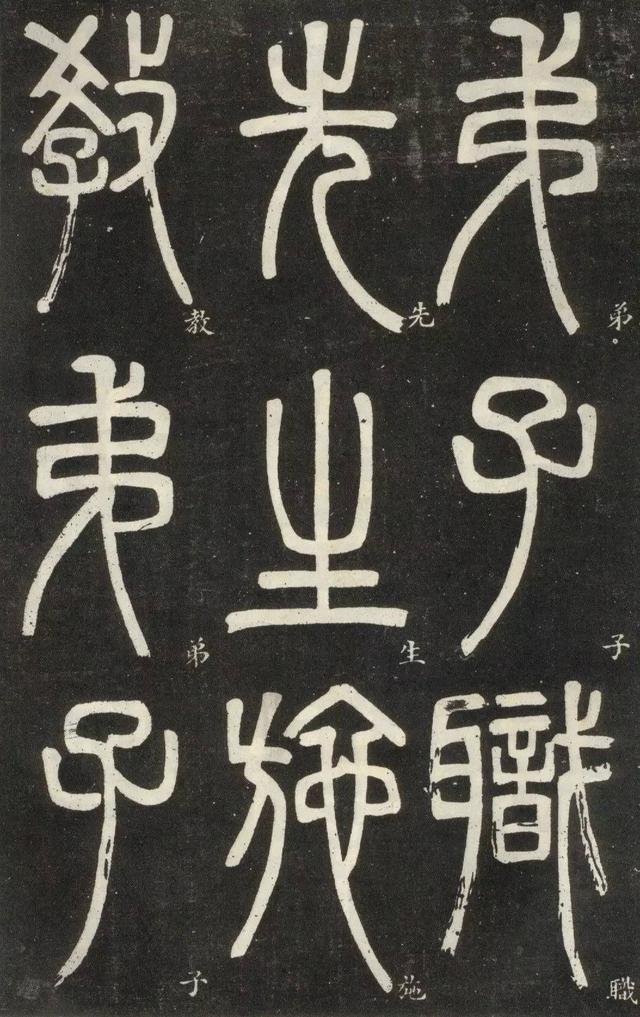 弟子職
先生施
教弟子
弟子職
先生施
教弟子